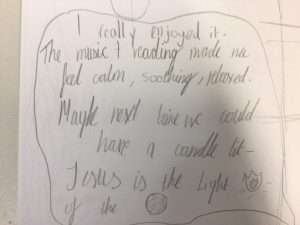 I really enjoyed it.
The music & reading made me
feel calm, soothing, relaxed.
Maybe next time we could
have a candle lit -
Jesus is the Light
of the